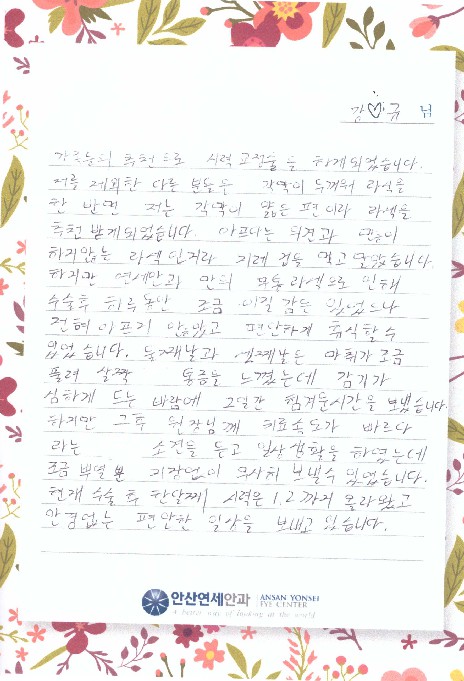 강♡규 님
가족들의 추천으로 시력교정술을 하게되었습니다.
저를 제외한 다른 분들은 각막이 두꺼워 라식을
한 반면 저는 각막이 얇은 편이라 라섹을
추천받게되었습니다. 아프다는 의견과 많이
하지않는 라섹인거라 지레 겁을 먹고 말았습니다.
하지만 연세안과 만의 무통라섹으로 인해
수술후 하루동안 조금 이질감은 있었으나
전혀 아프기 않았고 편안하게 휴식할수
있었습니다. 둘째날과 셋째날은 마취가 조금
풀려 살짝 통증을 느꼈는데 감기가
심하게 드는 바람에 2일간 힘겨운시간을 보냈습니다.
하지만 그후 원장님께 회복속도가 빠르다
라는 소견을 듣고 일상생활을 하였는데
조금 뿌열 뿐 지장없이 무사히 보낼수 있었습니다.
현재 수술 후 한달째 시력은 1.2까지 올라왔고
안경없는 편안한 일상을 보내고 있습니다.
안산연세안과 ANSAN YONSEI
EYE CENTER
A better way of looking at the world